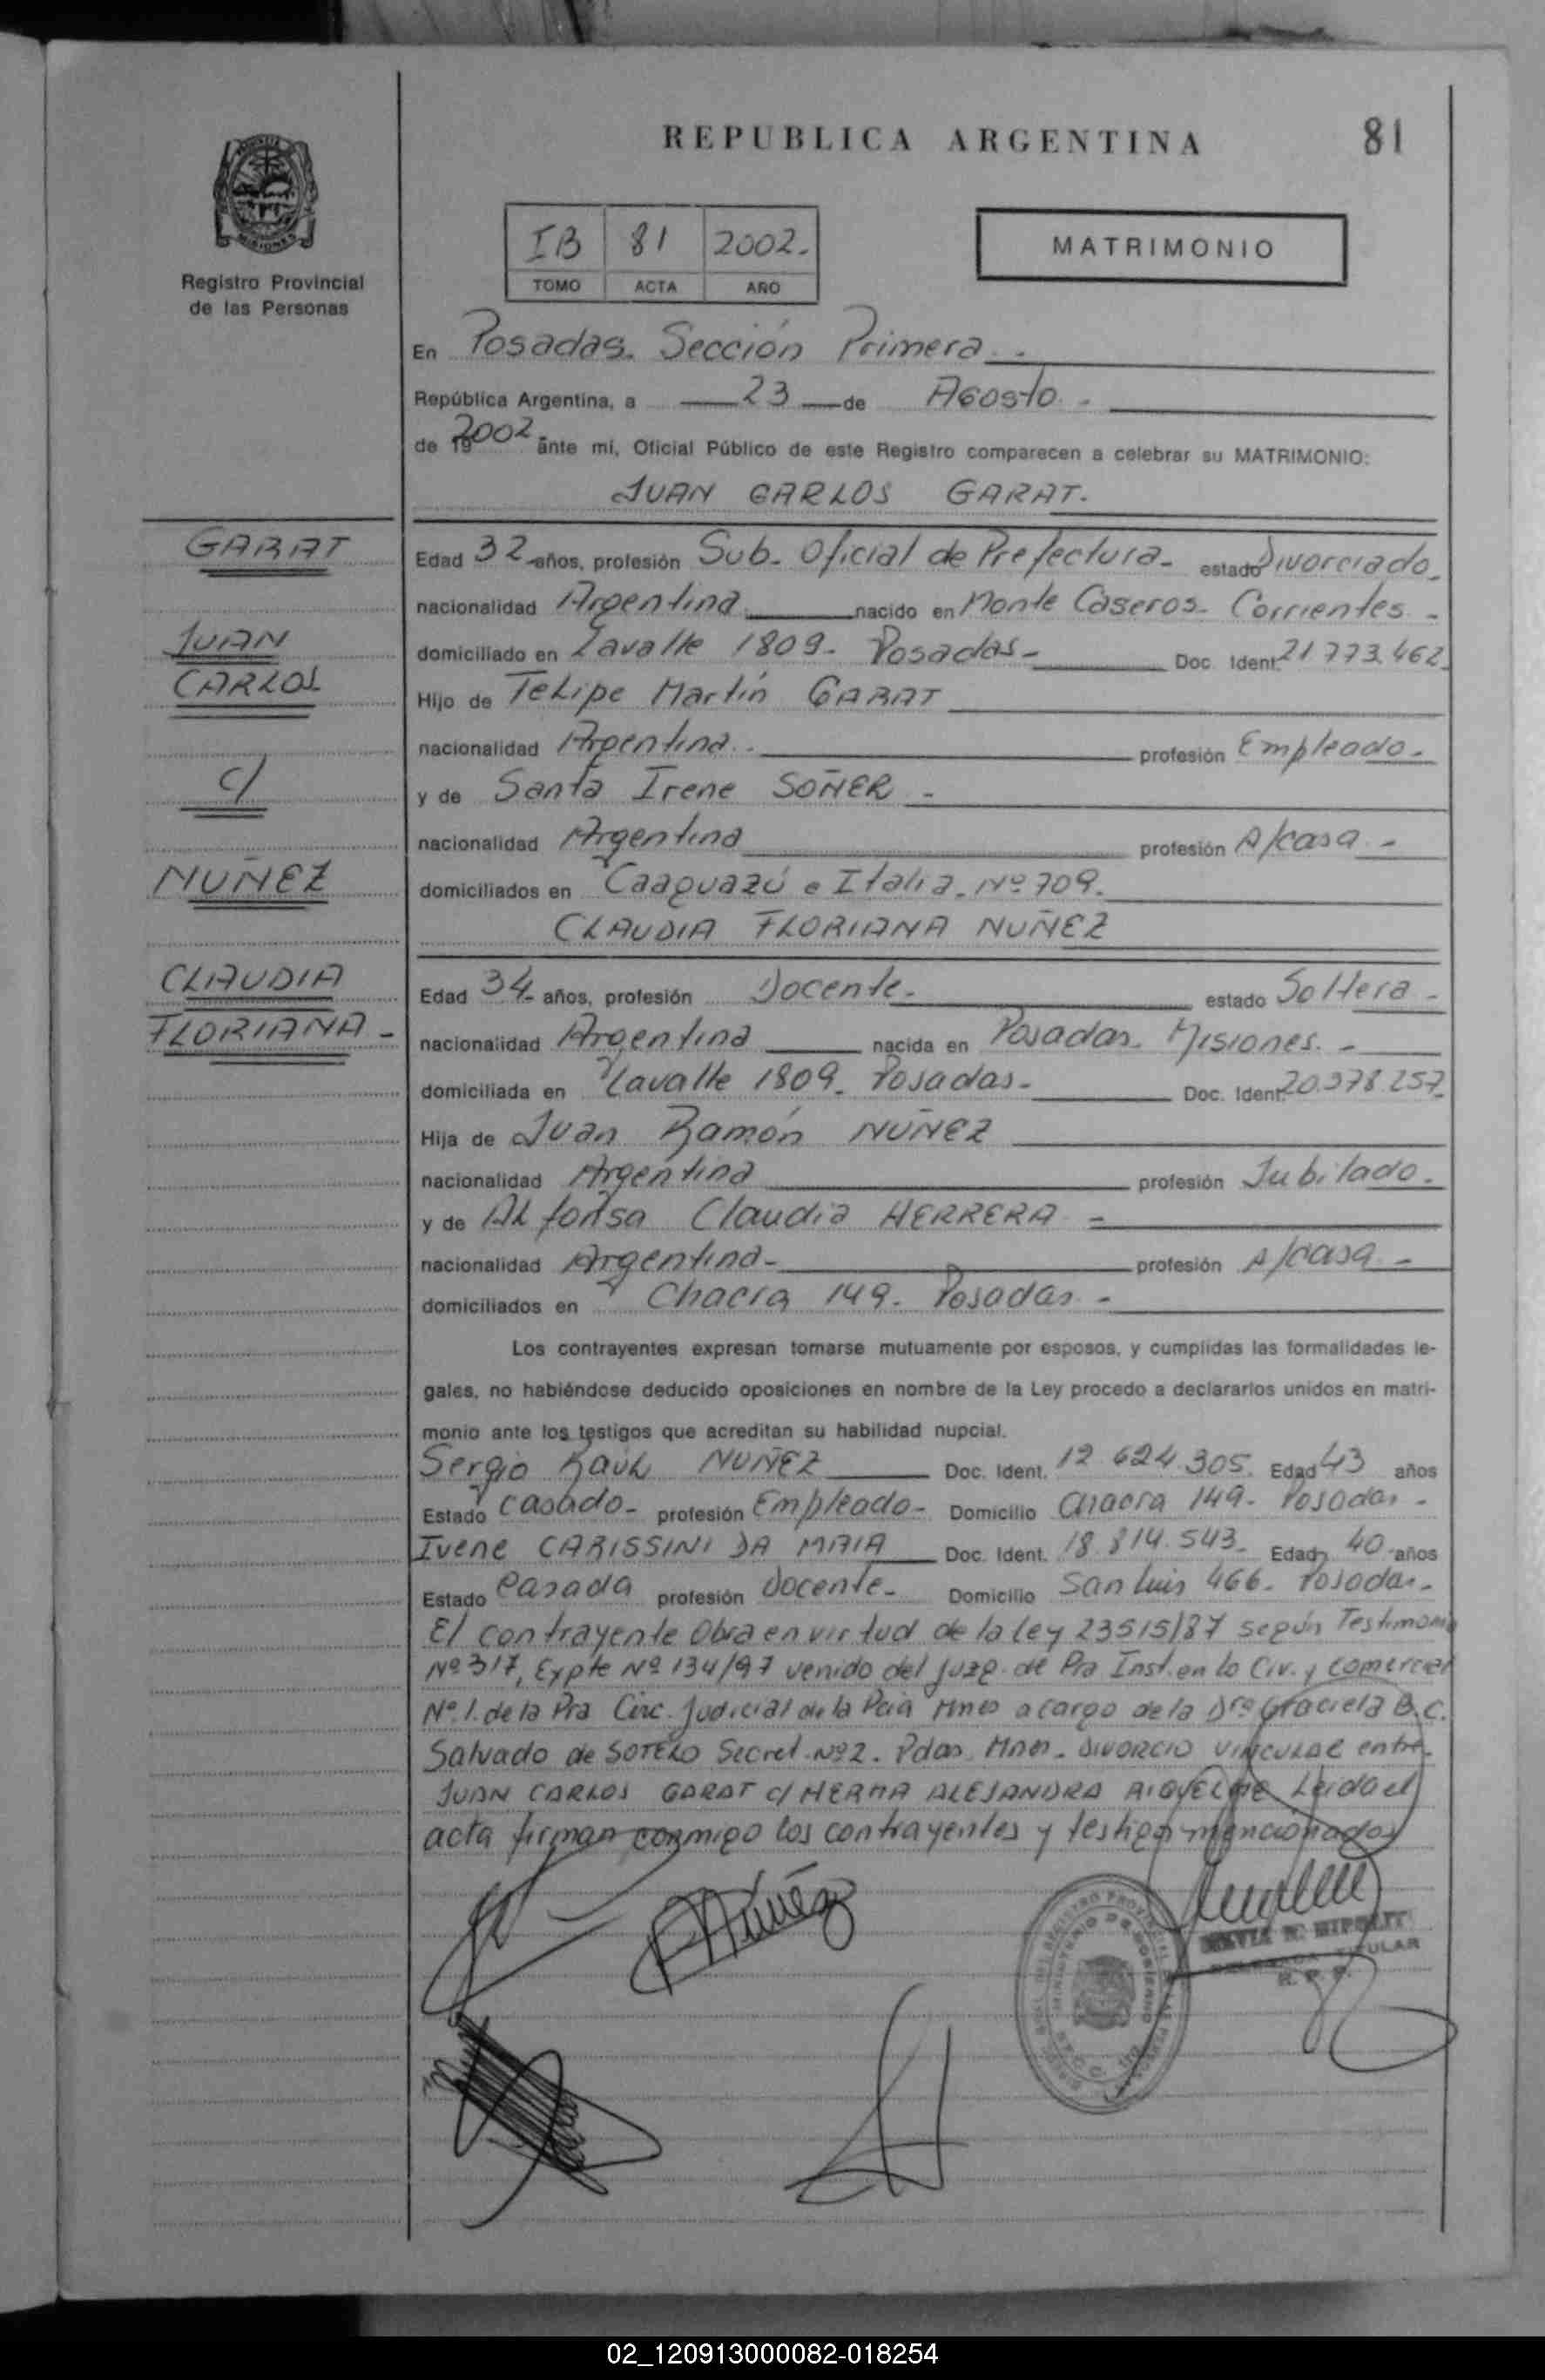 REPUBLICA ARGENTINA
81
Registro Provincial
de las Personas
IB 81 2002.
TOMO ACTA AÑO
MATRIMONIO
En Posadas. Sección Primera.
República Argentina, a 23 de Agosto.
de 19 2002 ante mi, Oficial Público de este Registro comparecen a celebrar su MATRIMONIO:
JUAN CARLOS GARAT.
GARAT
JUAN
CARLOS
C/
NUÑEZ
CLAUDIA
FLORIANA -
Edad 32 años, profesión Sub. Oficial de Prefectura - estado Divorciado.
nacionalidad Argentina nacido en Monte Caseros - Corrientes -
domiciliado en Lavalle 1809 - Posadas - Doc. Ident. 21.773.462
Hijo de Felipe Martín GARAT
nacionalidad Argentina. profesión Empleado.
y de Santa Irene SOÑER -
nacionalidad Argentina profesión A/casa -
domiciliados en Caaguazú e Italia. Nº 709.
CLAUDIA FLORIANA NUÑEZ
Edad 34 años, profesión Docente. estado Soltera -
nacionalidad Argentina nacida en Posadas. Misiones. -
domiciliada en Lavalle 1809 - Posadas - Doc. Ident. 20.378.257
Hija de Juan Ramón NUÑEZ
nacionalidad Argentina profesión Jubilado.
y de Alfonsa Claudia HERRERA -
nacionalidad Argentina - profesión A/casa -
domiciliados en Chacra 149 - Posadas -
Los contrayentes expresan tomarse mutuamente por esposos, y cumplidas las formalidades le-
gales, no habiéndose deducido oposiciones en nombre de la Ley procedo a declararlos unidos en matri-
monio ante los testigos que acreditan su habilidad nupcial.
Sergio Raúl NUÑEZ Doc. Ident. 12.624.305. Edad 43 años
Estado Casado - profesión Empleado - Domicilio Chacra 149 - Posadas -
Ivene CARISSINI DA MAIA Doc. Ident. 18.814.543 - Edad 40 años
Estado Casada profesión docente - Domicilio San Luis 466 - Posadas -
El contrayente Obra en virtud de la ley 23515/87 según Testimonio
Nº 317, Expte Nº 134/97 venido del Juzg. de Pra Inst. en lo Civ. y comercial
Nº 1. de la Pra Circ. Judicial de la Pcia Mnes a cargo de la Dra Graciela B.C.
Salvado de SOTELO Secret. Nº 2. Pdas. Mnes. DIVORCIO VINCULAR entre
JUAN CARLOS GARAT c/ ALEJANDRA RIQUELME Leida el
acta firman conmigo los contrayentes y testigos mencionados
Núñez
TITULAR
R. P. P.
02_120913000082-018254